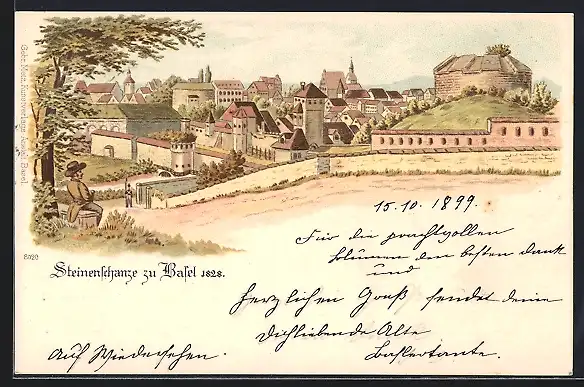 Gebr. Metz, Kunstverlag, Basel.
8020
Steinenschanze zu Basel 1828.
15.10.1899.
Für die prachtvollen
blumen den besten dank
und
herzlichen Gruß sendet deine
Dichliebende Alte
Baslertante.
Auf Wiedersehen.